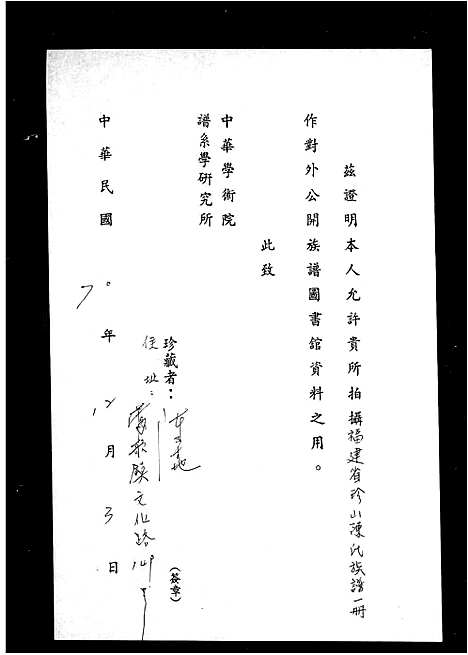 茲證明本人允許貴所拍攝福建省珍山陳氏族譜一冊
作對外公開族譜圖書館資料之用。
此致
中華學術院
譜系學研究所
珍藏者：
住址：文化路
(簽章)
中華民國 七〇年12月3日